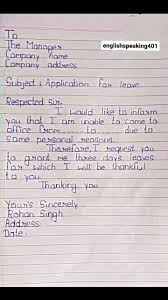 To
The Manager
Company name
Company address
englishspeaking401
Subject : Application for leave
Respected Sir,
I would like to inform
you that I am unable to came to
office from ........ to ....... due to
some personal reasons.
Therefore, I request you
to grant me three days leaves
for which I will be thankful
to you.
Thanking you
Your's Sincerely
Rohan Singh
Address:
Date: